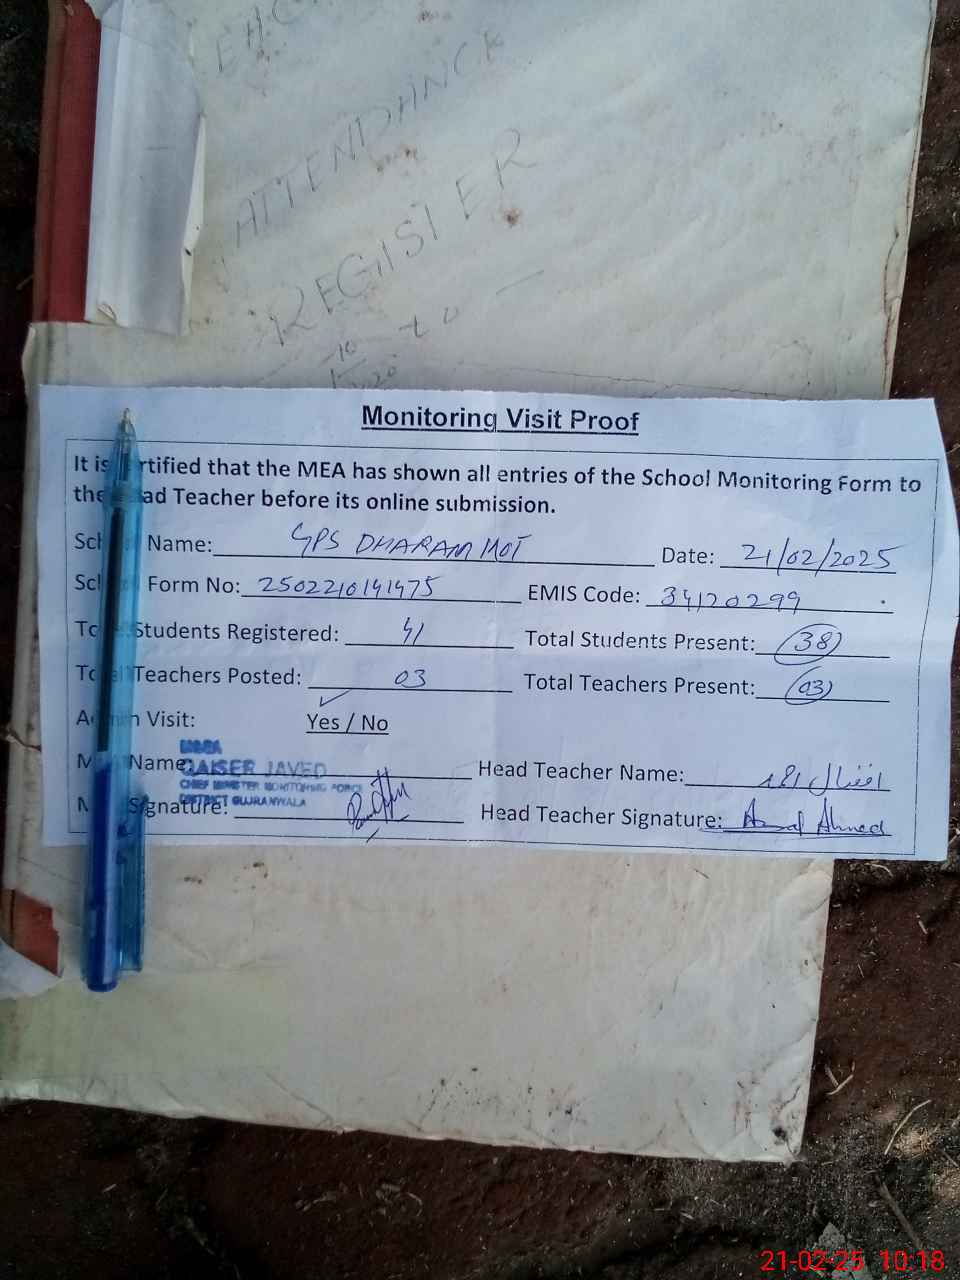 ATTENDANCE
REGISTER
Monitoring Visit Proof
It is rtified that the MEA has shown all entries of the School Monitoring Form to
the ad Teacher before its online submission.
Sch Name: GPS DHARAM KOT Date: 21/02/2025
Sc Form No: 2502210141475 EMIS Code: 34120299
To Students Registered: 41 Total Students Present: 38
To Teachers Posted: 03 Total Teachers Present: 03
Ad n Visit: Yes / No
M Name: Head Teacher Name: افضال احمد
QAISER JAVED
CHIEF MINISTER MONITORING FORCE
DISTRICT GUJRANWALA
Signature: Head Teacher Signature: Afzal Ahmed
21-02-25 10:18